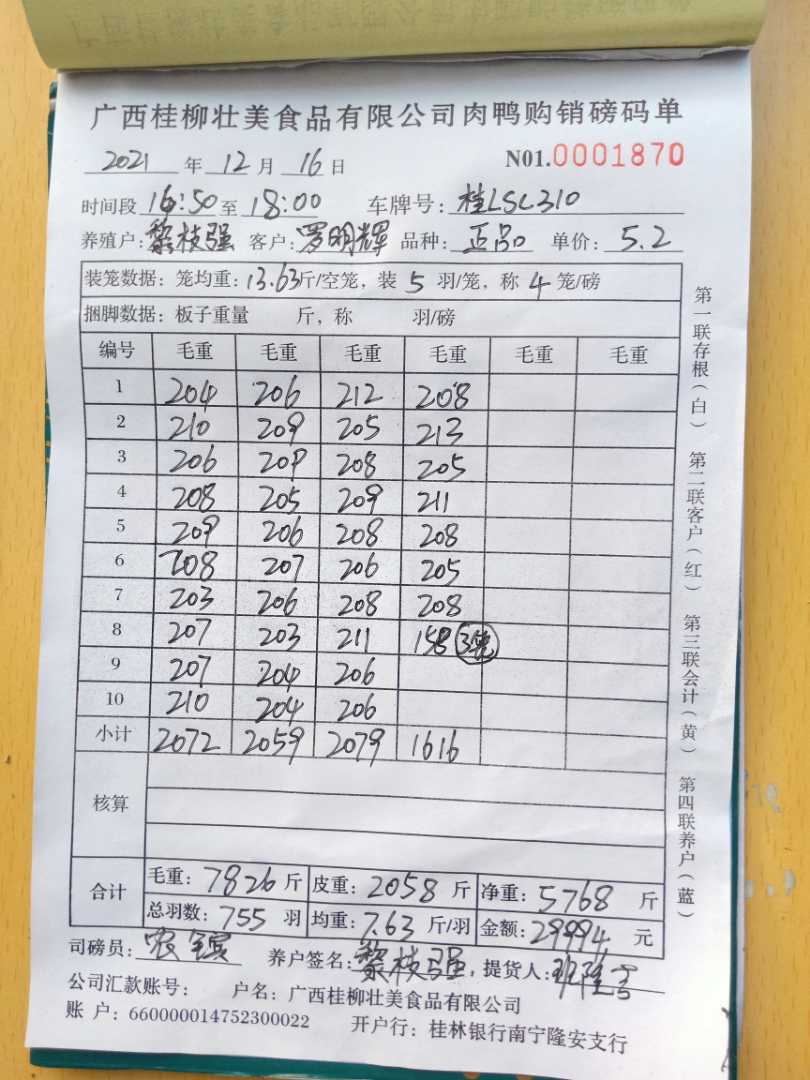 广西桂柳壮美食品有限公司肉鸭购销磅码单
2021 年 12 月 16 日 N01.0001870
时间段 16:50 至 18:00 车牌号: 桂LSC310
养殖户: 黎枝强 客户: 罗明辉 品种: 正品 单价: 5.2
装笼数据: 笼均重: 13.63斤/空笼, 装 5 羽/笼, 称 4 笼/磅
捆脚数据: 板子重量 斤, 称 羽/磅
编号 毛重 毛重 毛重 毛重 毛重 毛重
1 204 206 212 208
2 210 209 205 213
3 206 209 208 205
4 208 205 209 211
5 209 206 208 208
6 208 207 206 205
7 203 206 208 208
8 207 203 211 158 3笼
9 207 204 206
10 210 204 206
小计 2072 2059 2079 1616
核算
合计 毛重: 7826 斤 皮重: 2058 斤 净重: 5768 斤
总羽数: 755 羽 均重: 7.63 斤/羽 金额: 29994 元
司磅员: 农 养户签名: 黎枝强, 提货人:
公司汇款账号: 户名: 广西桂柳壮美食品有限公司
账 户: 660000014752300022 开户行: 桂林银行南宁隆安支行
第一联存根(白) 第二联客户(红) 第三联会计(黄) 第四联养户(蓝)